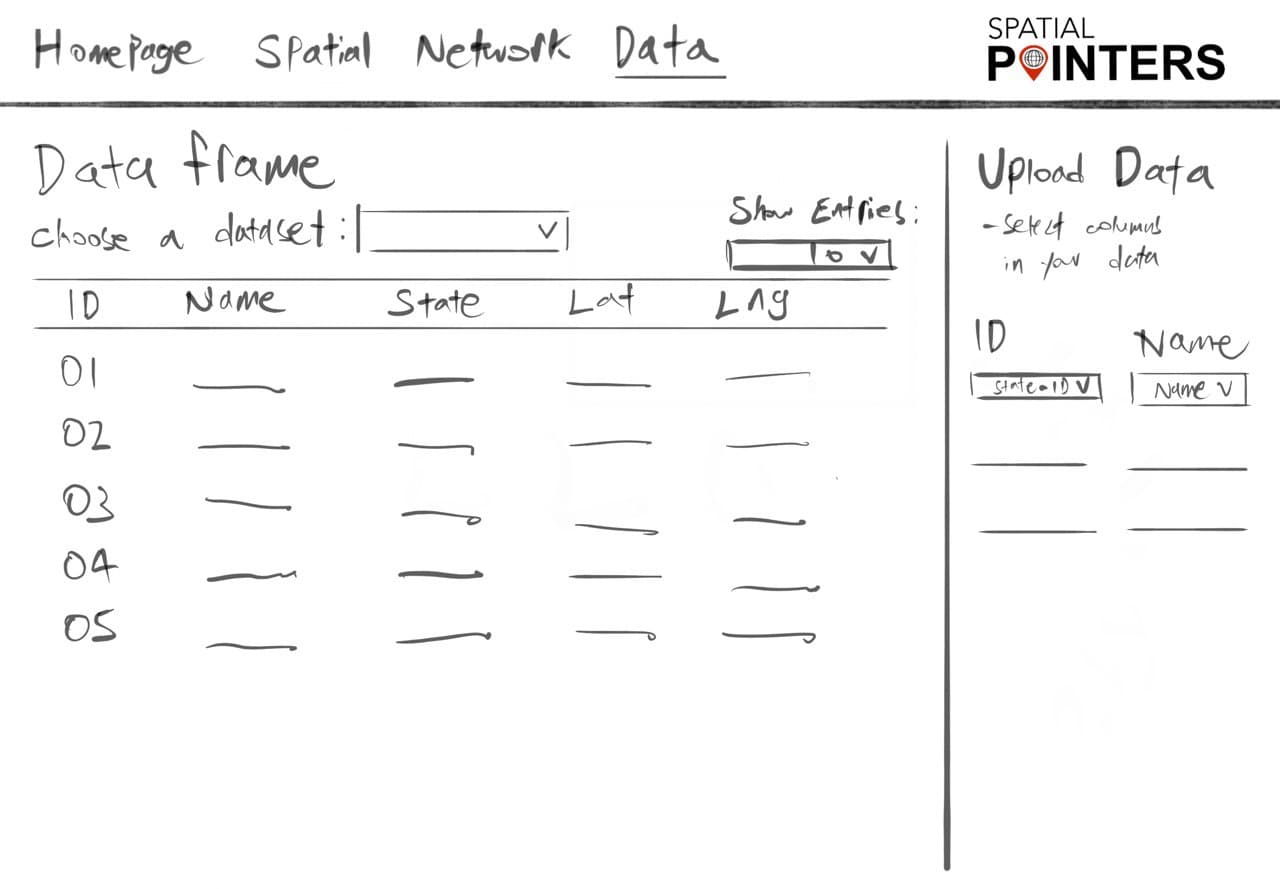 Homepage Spatial Network Data
SPATIAL
POINTERS
Data frame
choose a dataset:
Show Entries:
10
ID Name State Lat Lng
01
02
03
04
05
Upload Data
- Select columns
in your data
ID Name
State-ID Name